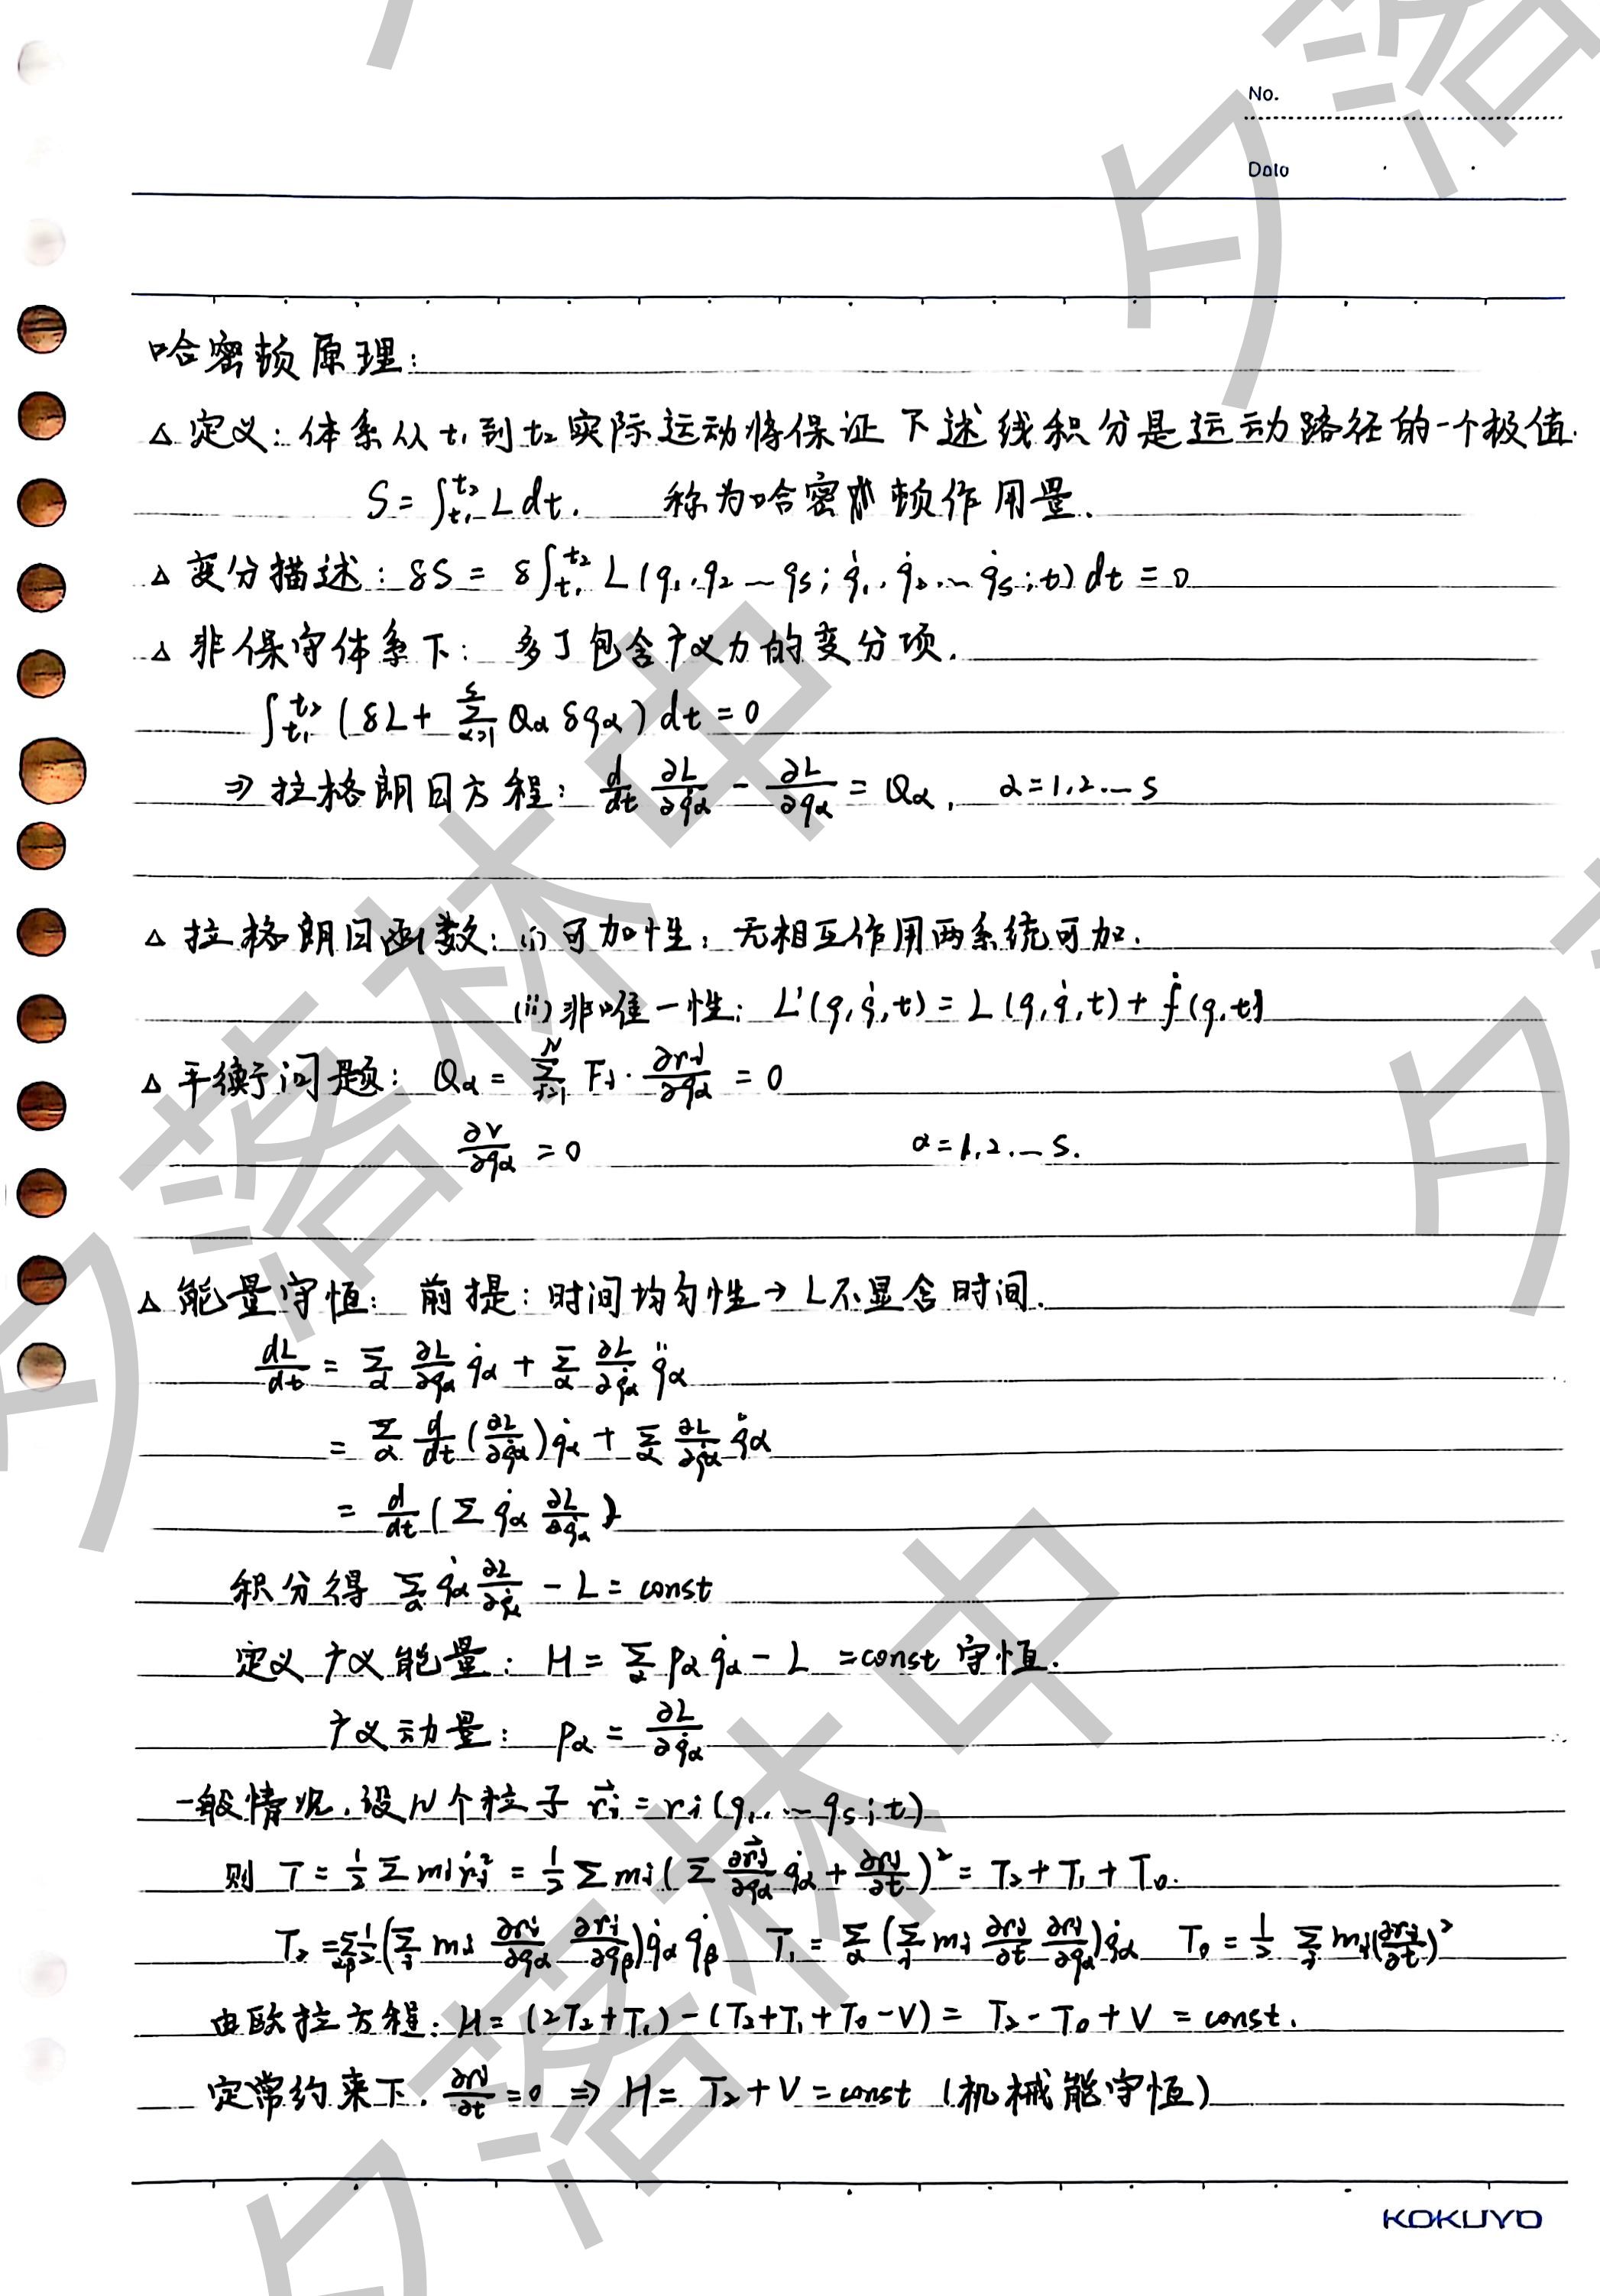 No.
Date
哈密顿原理:
△ 定义: 体系从 t₁ 到 t₂ 实际运动将保证下述线积分是运动路径的一个极值.
S = ∫_{t₁}^{t₂} L dt. 称为哈密顿作用量.
△ 变分描述: δS = δ∫_{t₁}^{t₂} L(q₁.q₂ … qₛ; q̇₁.q̇₂.… q̇ₛ; t) dt = 0
△ 非保守体系下: 多了包含广义力的变分项.
∫_{t₁}^{t₂} (δL + Σ_{α=1}^{s} Qα δqα) dt = 0
⇒ 拉格朗日方程: d/dt ∂L/∂q̇α − ∂L/∂qα = Qα, α=1,2…s
△ 拉格朗日函数: (i) 可加性: 无相互作用两系统可加.
(ii) 非唯一性: L'(q,q̇,t) = L(q,q̇,t) + ḟ(q,t)
△ 平衡问题: Qα = Σ_{j=1}^{N} Fj · ∂rj/∂qα = 0
∂V/∂qα = 0 α=1,2.…s.
△ 能量守恒: 前提: 时间均匀性 → L不显含时间.
dL/dt = Σ_α ∂L/∂qα q̇α + Σ_α ∂L/∂q̇α q̈α
= Σ_α d/dt (∂L/∂q̇α) q̇α + Σ_α ∂L/∂q̇α q̈α
= d/dt (Σ q̇α ∂L/∂q̇α)
积分得 Σ_α q̇α ∂L/∂q̇α − L = const
定义广义能量: H = Σ_α pα q̇α − L = const 守恒.
广义动量: pα = ∂L/∂q̇α
一般情况.设N个粒子 r⃗i = ri(q₁.… qₛ; t)
则 T = ½ Σ mj ṙj² = ½ Σ mj (Σ ∂r⃗j/∂qα q̇α + ∂rj/∂t)² = T₂ + T₁ + T₀.
T₂ = Σ_{αβ} ½ (Σ_j mj ∂rj/∂qα ∂rj/∂qβ) q̇α q̇β T₁ = Σ_α (Σ_j mj ∂rj/∂t ∂rj/∂qα) q̇α T₀ = ½ Σ_j mj (∂rj/∂t)²
由欧拉方程: H = (2T₂+T₁) − (T₂+T₁+T₀−V) = T₂ − T₀ + V = const.
定常约束下. ∂rj/∂t = 0 ⇒ H = T₂ + V = const (机械能守恒)
KOKUYO
夕落林中
夕落林中
夕落
夕